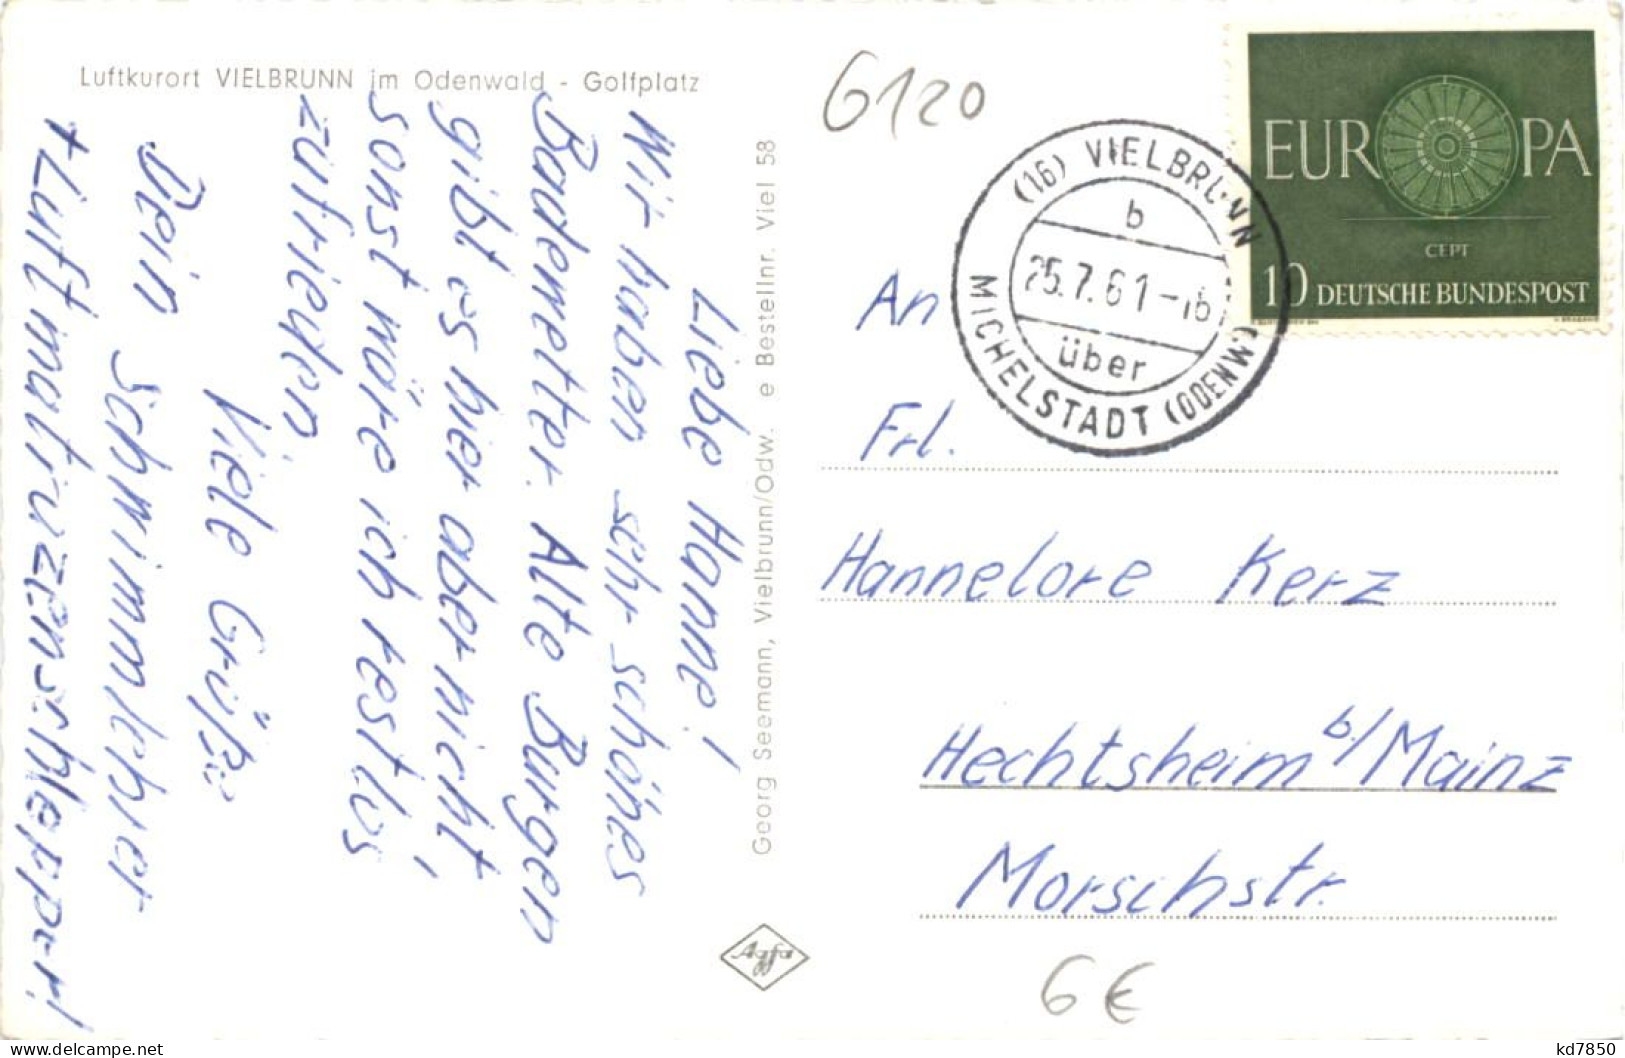 Luftkurort VIELBRUNN im Odenwald - Golfplatz
Liebe Hanne!
Wir haben sehr schönes
Badewetter. Alte Burgen
gibt es hier aber nicht,
sonst wäre ich restlos
zufrieden.
Viele Grüße
Dein Schwimmlehrer
+ Luftmatratzenschlepper!
Georg Seemann, Vielbrunn/Odw. e Bestellnr. Viel 58
Agfa
6120
(16) VIELBRUNN
b
25.7.61-16
über
MICHELSTADT (ODENW)
EUROPA
CEPT
10 DEUTSCHE BUNDESPOST
An
Frl.
Hannelore Kerz
Hechtsheim b/Mainz
Morschstr.
6 €
kd7850